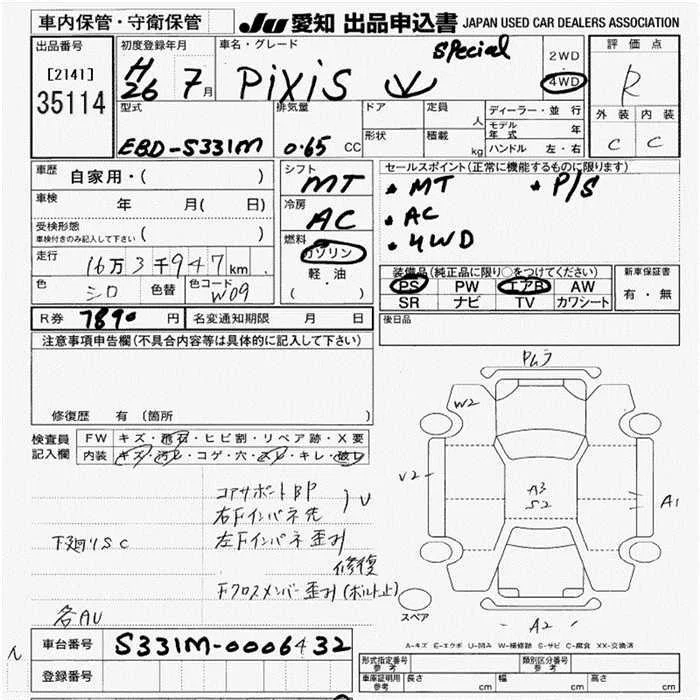 車内保管・守衛保管
JU 愛知 出品申込書 JAPAN USED CAR DEALERS ASSOCIATION
出品番号
[2141]
35114
初度登録年月
H 26 7月
車名・グレード
PiXiS
Special
2WD
・
4WD
評価点
R
外装 内装
C C
型式
EBD-S331M
排気量
0.65 CC
ドア
形状
定員
人
積載
kg
ディーラー・並行
モデル年式 年
ハンドル 左・右
車歴
自家用・( )
車検
年 月( 日)
受検形態
車検付きのみ記入して下さい ( )
走行
16万3千947km
色
シロ
色替
色コード
W09
シフト
MT
冷房
AC
燃料
ガソリン
軽油
( )
セールスポイント(正常に機能するものに限ります)
• MT • P/S
• AC
• 4WD
装備品(純正品に限り○をつけてください)
PS PW エアB AW
SR ナビ TV カワシート
新車保証書
有・無
R券 7890円 名変通知期限 月 日
後日品
注意事項申告欄(不具合内容等は具体的に記入して下さい)
修復歴 有(箇所 )
検査員記入欄
FW キズ・飛石・ヒビ割・リペア跡・X要
内装 キズ・汚レ・コゲ・穴・スレ・キレ・破レ
コアサポートBP
右Fインパネ先
U
下廻りSC
左Fインパネ歪み
修復
Fクロスメンバー歪み(ボルト止)
各AU
W2
V2
A3
S2
A1
A2
スペア
A-キズ E-エクボ U-凹み W-補修跡 S-サビ C-腐食 XX-交換済
車台番号 S331M-0006432
登録番号
形式指定番号 参考
類別区分番号 参考
車庫証明用 参考 長さ cm 幅 cm 高さ cm